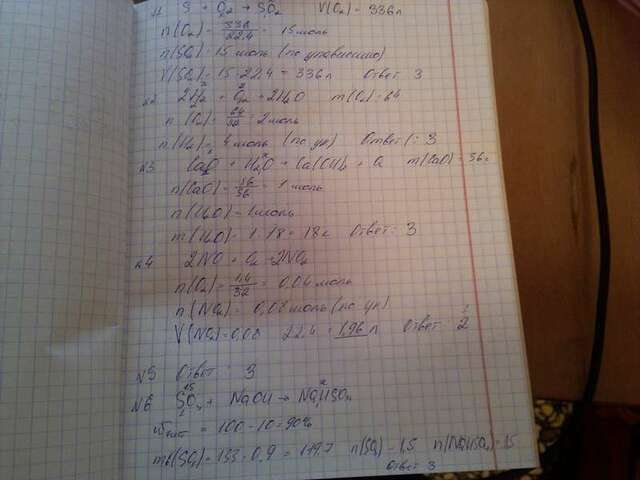 S + O₂ → SO₂ V(O₂) = 336л
n(O₂) = 336/22.4 = 15 моль
n(SO₂) = 15 моль (по уравнению)
V(SO₂) = 15 · 22.4 = 336л Ответ 3
№2 2H₂ + O₂ = 2H₂O m(O₂) = 64
n(O₂) = 64/32 = 2 моль
n(H₂) = 4 моль (по ур) Ответ: 3
№3 CaO + H₂O = Ca(OH)₂ + Q m(CaO) = 56г
n(CaO) = 56/56 = 1 моль
n(H₂O) = 1 моль
m(H₂O) = 1 · 18 = 18г Ответ: 3
№4 2NO + O₂ = 2NO₂
n(O₂) = 1,4/32 = 0,04 моль
n(NO₂) = 0,08 моль (по ур)
V(NO₂) = 0,08 22.4 = 1,96 л Ответ 2
№5 Ответ: 3
№6 SO₃ + NaOH → NaHSO₄
= 100 - 10 = 90%
(SO₃) = 133 · 0,9 = 119,7 n(SO₃) = 1,5 n(NaHSO₄) = 1,5
Ответ 3